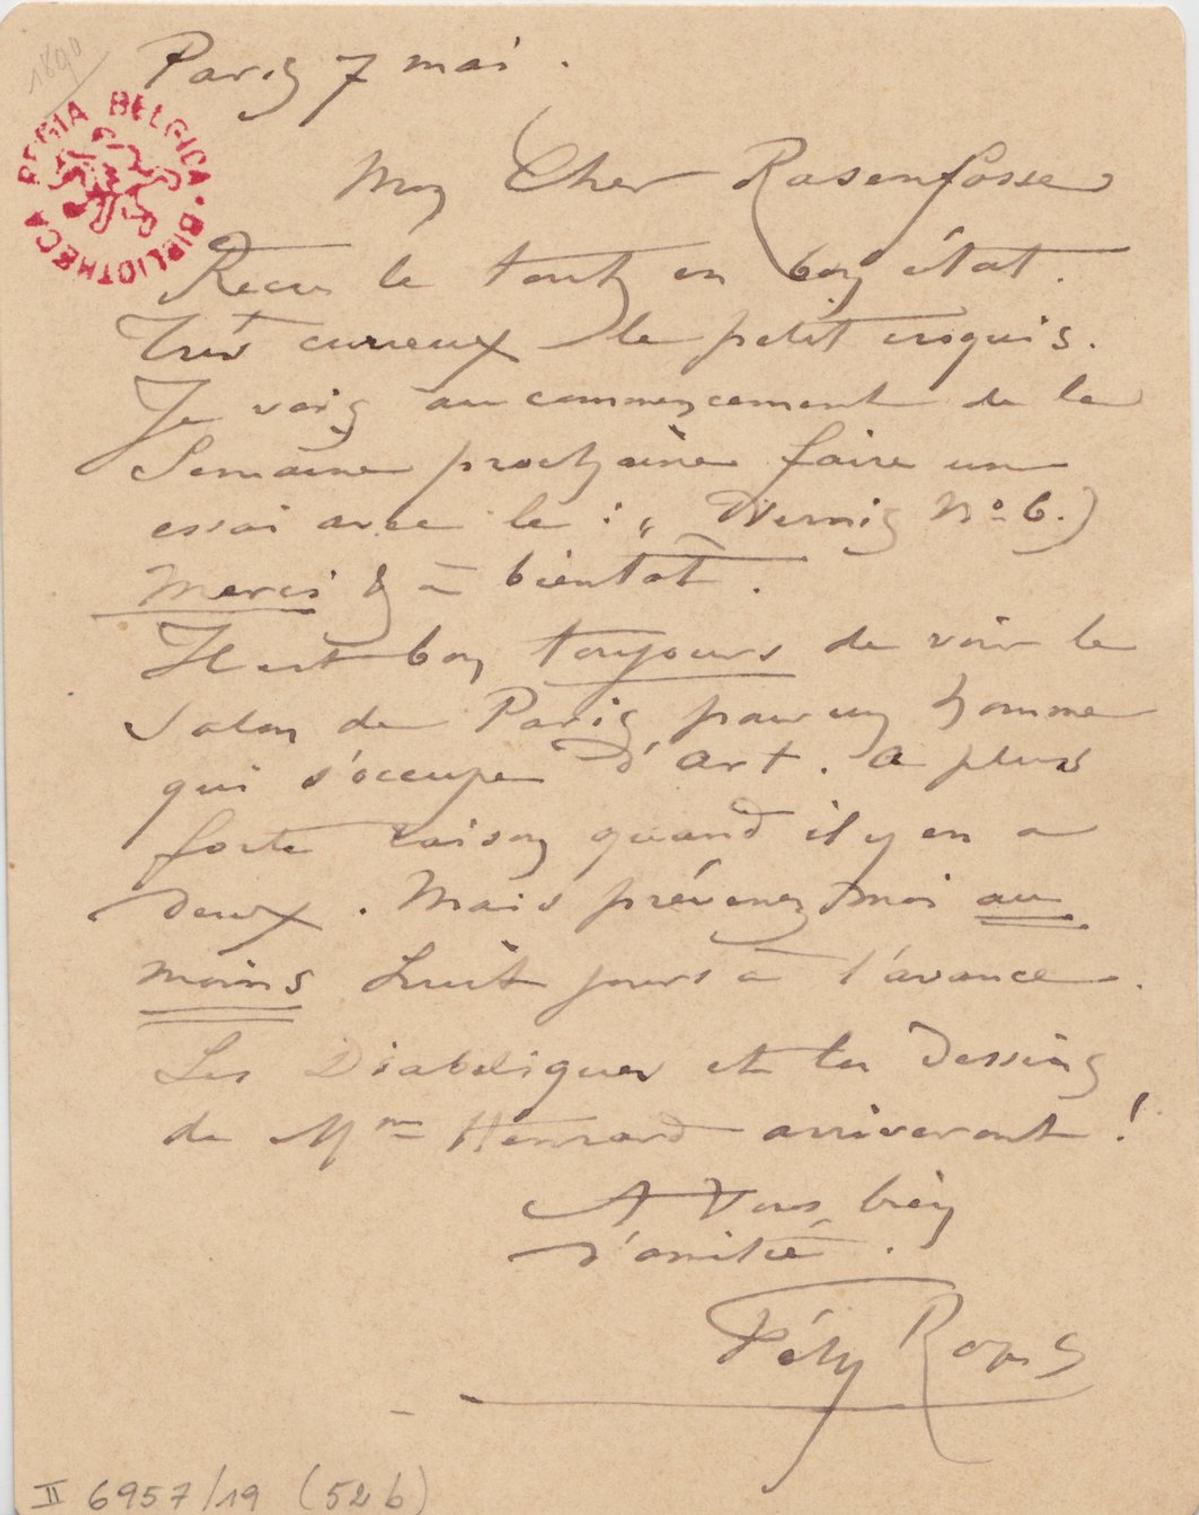 1890
Paris 7 mai.
REGIA BELGICA · BIBLIOTHECA
Mon Cher Rasenfosse
Reçu le tout en bon état.
Très curieux le petit croquis.
Je vais au commencement de la
Semaine prochaine faire un
essai avec le : „ Vernis No 6.)
Merci & à bientôt.
Il est bon toujours de voir le
Salon de Paris pour un homme
qui s'occupe d'art. a plus
forte raison quand il y en a
deux. Mais prévenez moi au
moins huit jours à l'avance.
Les Diaboliques et les dessins
de Mme Henrard arriveront !
A Vous bien
d'amitié.
Fély Rops
II 6957/19 (52 b)